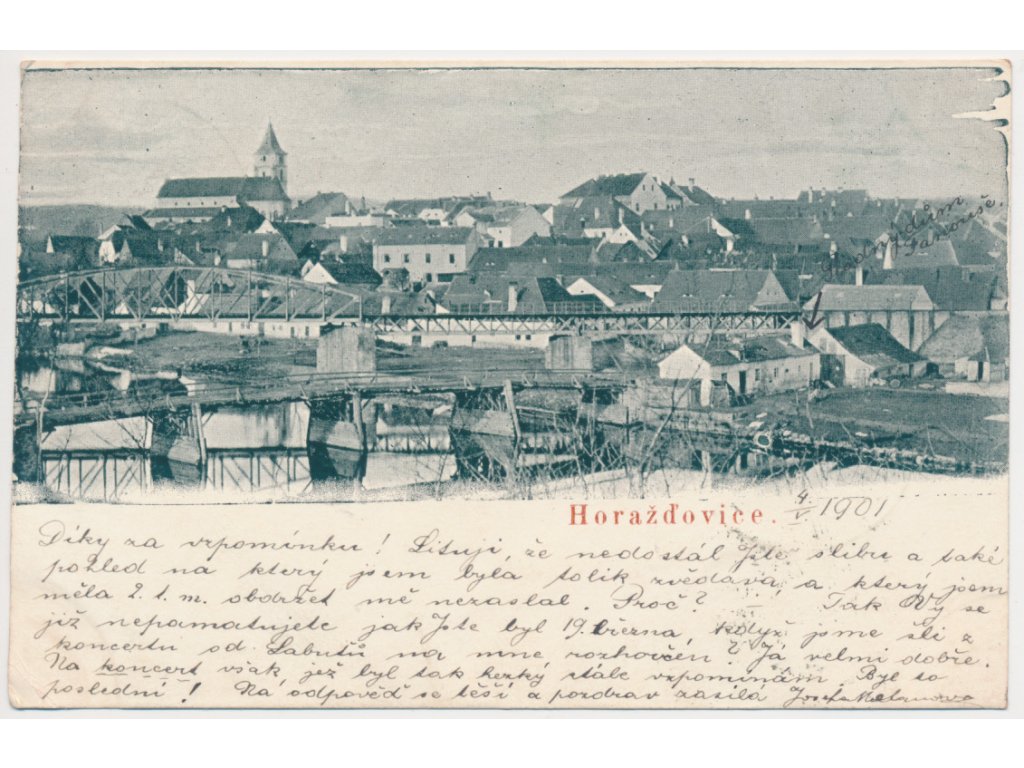 dům
Horažďovice.
4/V 1901
Díky za vzpomínku! Lituji, že nedostál Jste slibu a také
pohled na který jsem byla tolik zvědavá, a který jsem
měla 2. t. m. obdržet mě nezaslal. Proč? — Tak Vy se
již nepamatujete jak Jste byl 19. března, když jsme šli z
koncertu od Labutů na mne rozhořčen? Já velmi dobře.
Na koncert však jež byl tak hezký stále vzpomínám. Byl to
poslední! Na odpověď se těší a pozdrav zasílá Josefa